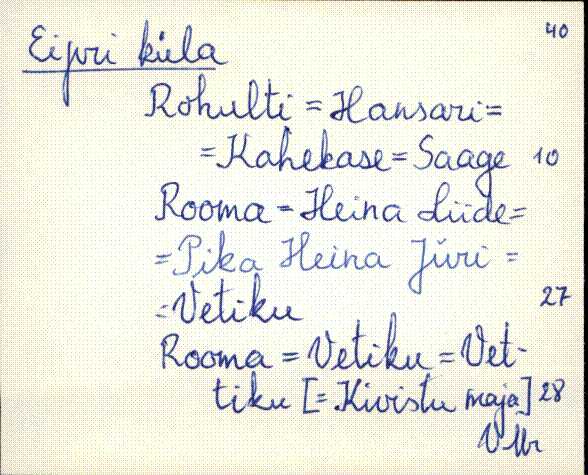 40
Eipri küla
Rohulti = Hansari =
= Kahekase = Saage 10
Rooma = Heina Liide =
= Pika Heina Jüri =
= Vetiku 27
Rooma = Vetiku = Vet-
tiku [= Kivistu maja] 28